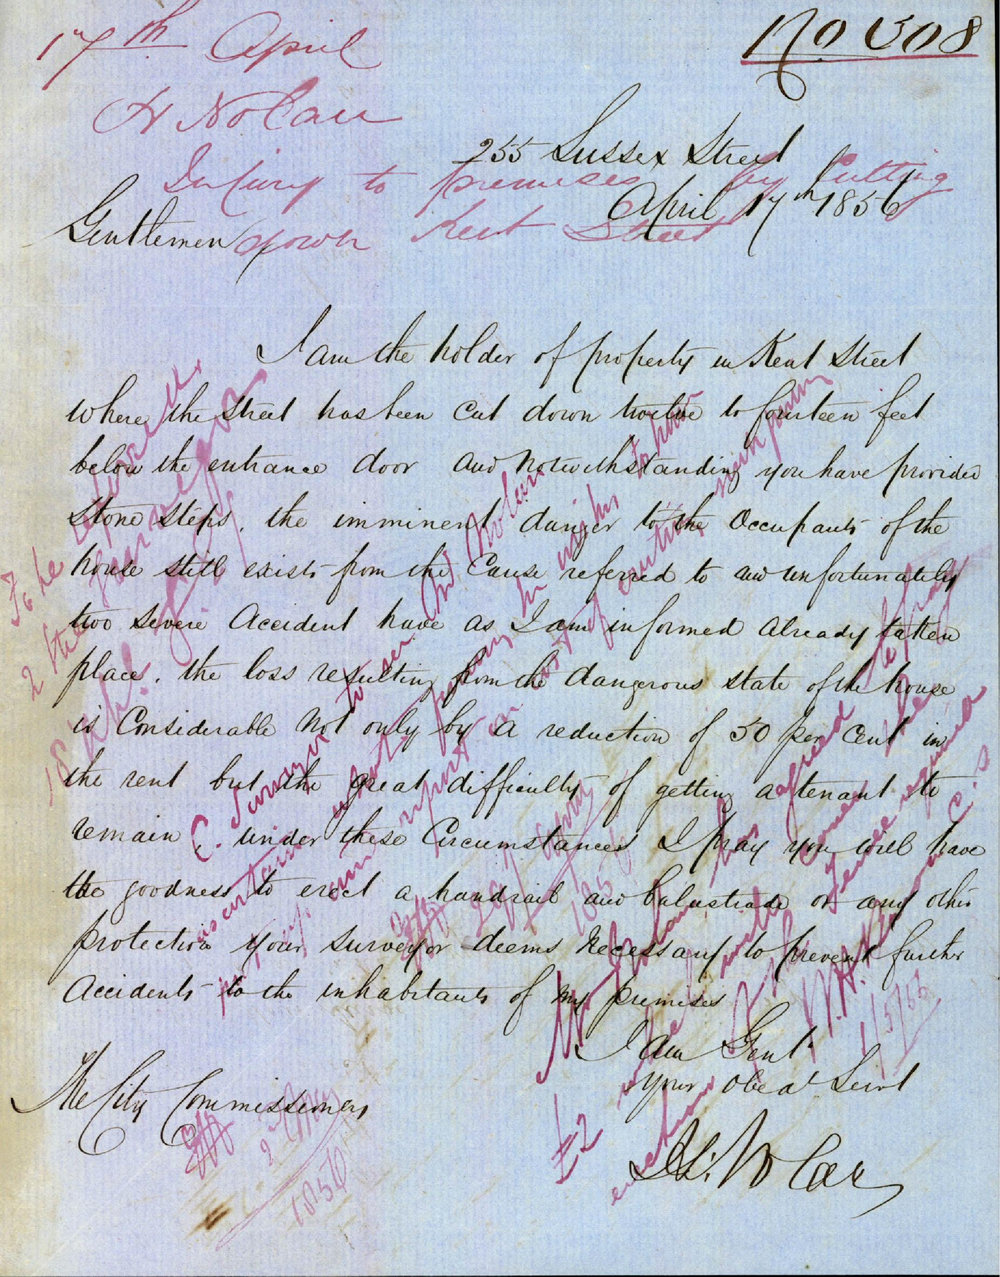 17th April
No 508
H Nolan
255 Sussex Street
Injury to premises by Cutting
April 17th 1856
Gentlemen
down Kent Street
I am the holder of property in Kent Street
where the Street has been Cut down twelve to fourteen feet
below the entrance door and notwithstanding you have provided
Stone Steps, the imminent danger to the Occupants of the
house still exists from the Cause referred to and unfortunately
two severe Accident have as I am informed already taken
place. the loss resulting from the dangerous state of the house
is Considerable not only by a reduction of 50 per Cent in
the rent but the great difficulty of getting a tenant to
remain under these Circumstances I pray you will have
the goodness to erect a handrail and balustrade or any other
protection your surveyor deems necessary to prevent further
Accidents to the inhabitants of my premises
I am Gent.
Your Obed Servt
The City Commissioners
H. Nolan
To be
18 April
C. Surveyor to see Mr Nolan
Mr Nolan has agreed to defray
£2
fence required
29 April
1856
2 May
1856
C. S
1/5/56